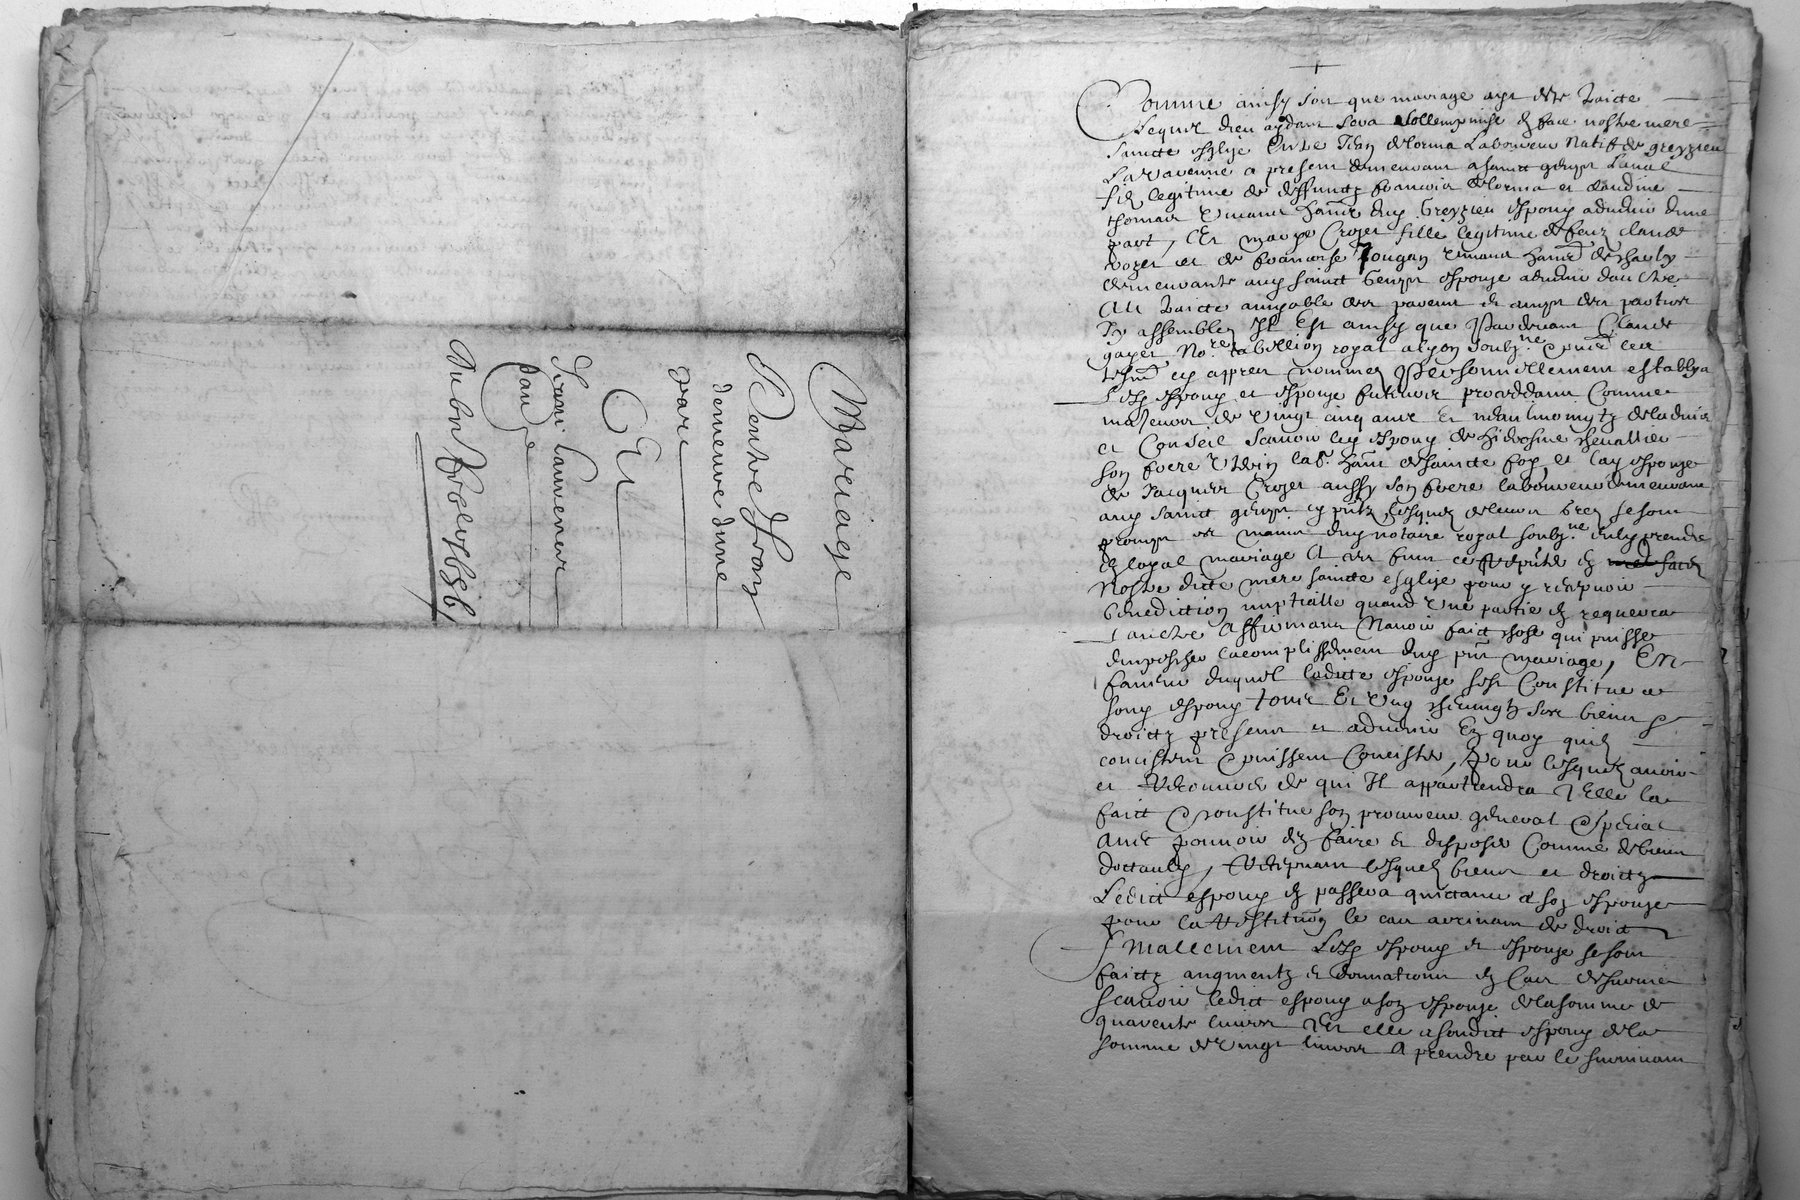 Mariage
Entre
demeure dune
part
Et
dautre
Comme ainsy soit que mariage aye este traicte
Lequel dieu aydant sera sollempnise en face nostre mere
saincte esglize Entre Jean delorma Laboureur Natif de greyzieu
La varenne a present demeurant a sainct genys Laval
filz legitime de deffunctz francois delorma et claudine
thomas vivants dud greyzieu espoux advenir dune
part, Et croyer fille legitime de feuz claude
croyer et de francoise vivants
demeurante aud sainct Genys espouze advenir daultre
Au traicte amyable des parens et amys des parties
Pource assemblez Il Est ainsy que Pardevant Claude
gayet No.re tabellion royal a lyon soubz.ne
tesmoings cy appres nommez Personnellement establys
Lesd espoux et espouze futeurs proceddans Comme
majeurs de vingt cinq ans Et neaulmoingtz de ladvis
et Conseil scavoir led espoux de chevallier
son frere uterin lab.r de saincte foy, et lad espouze
de Jacques Croyer aussy son frere laboureur demeurant
aud sainct genys cy presentz, lesquelz de leur gre se sont
promys es mains dud notaire royal soubz.ne dulx prendre
en loyal mariage Et aux fins se presenter en face
Nostre dicte mere saincte esglize pour y recepvoir
benediction nuptialle quand Une partie en requerra
Laultre Affirmans Navoir faict chose qui puisse
empescher lacomplissement dud present mariage, En
faveur duquel ladicte espouze sest Constitue a
sond espoux tous Et Ung chescungz ses biens
droictz presens et advenir En quoy quilz
concistent puissent Concister, Pour lesquelz avoir
et Recouvrer de qui Il appartiendra Elle la
faict Constitue son procureur general special
Avec pouvoir den faire et disposer Comme de biens
dottaulx, Retirant lesquelz biens et droictz
Ledict espoux en passera quictance a son espouze
pour la restitution le cas advenant de droict
Finallement Lesd espoux et espouze se sont
faictz augmentz et donnations en Cas de survie
scavoir ledict espoux a son espouze de la somme de
quarente livres Et elle a sondict espoux de la
somme de vingt livres A prendre par le survivant